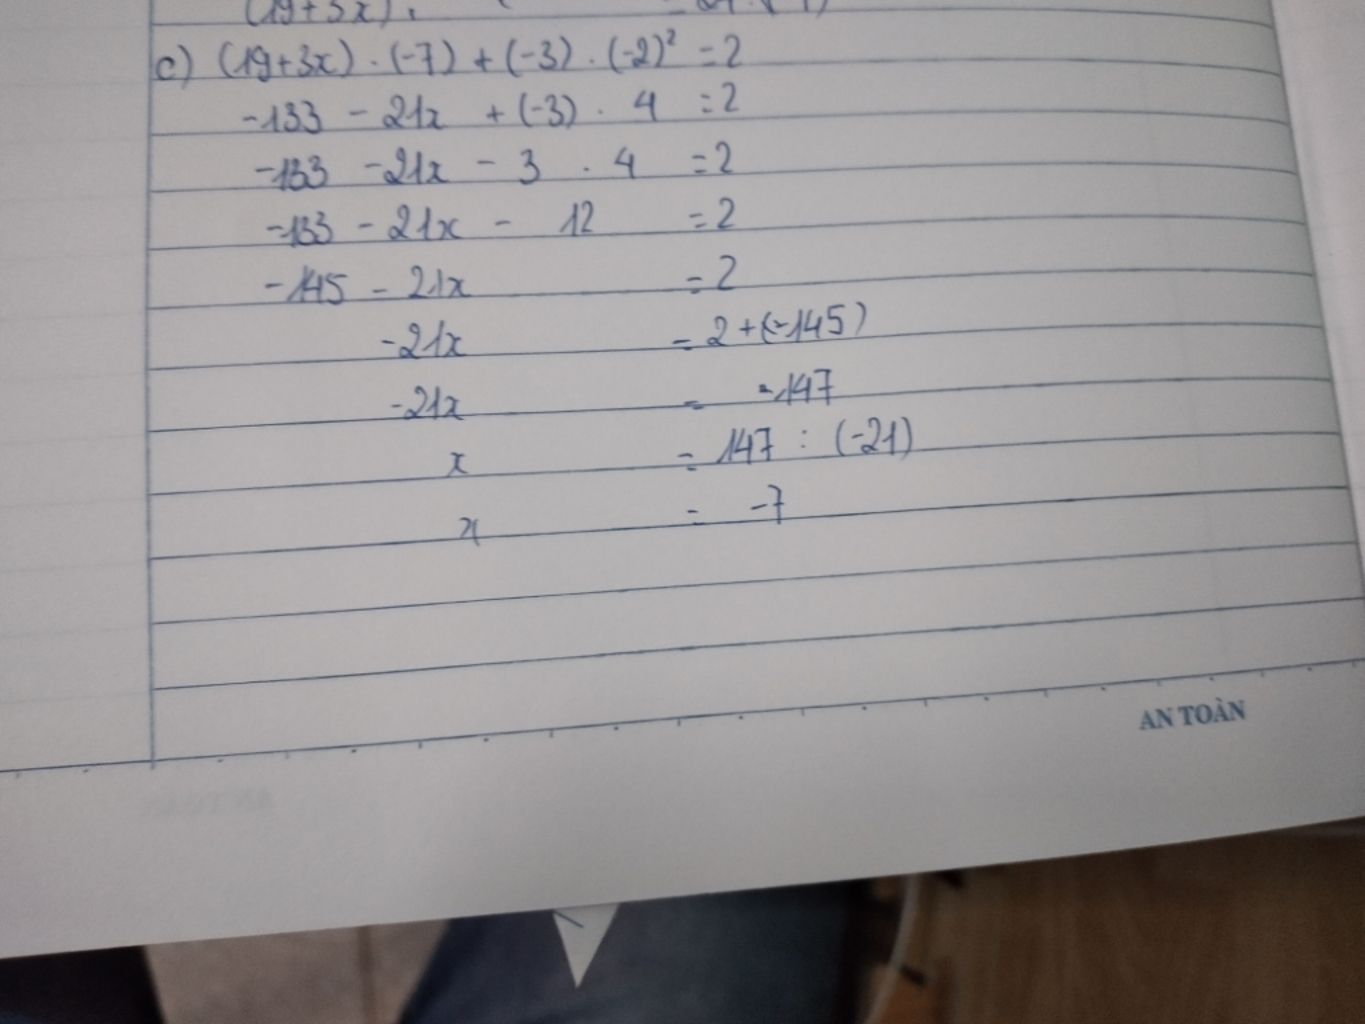 (19+3x).
c) (19+3x) . (-7) + (-3) . (-2)² = 2
-133 - 21x + (-3) . 4 = 2
-133 - 21x - 3 . 4 = 2
-133 - 21x - 12 = 2
-145 - 21x = 2
-21x = 2 + (-145)
-21x = -147
x = 147 : (-21)
x = -7
AN TOÀN